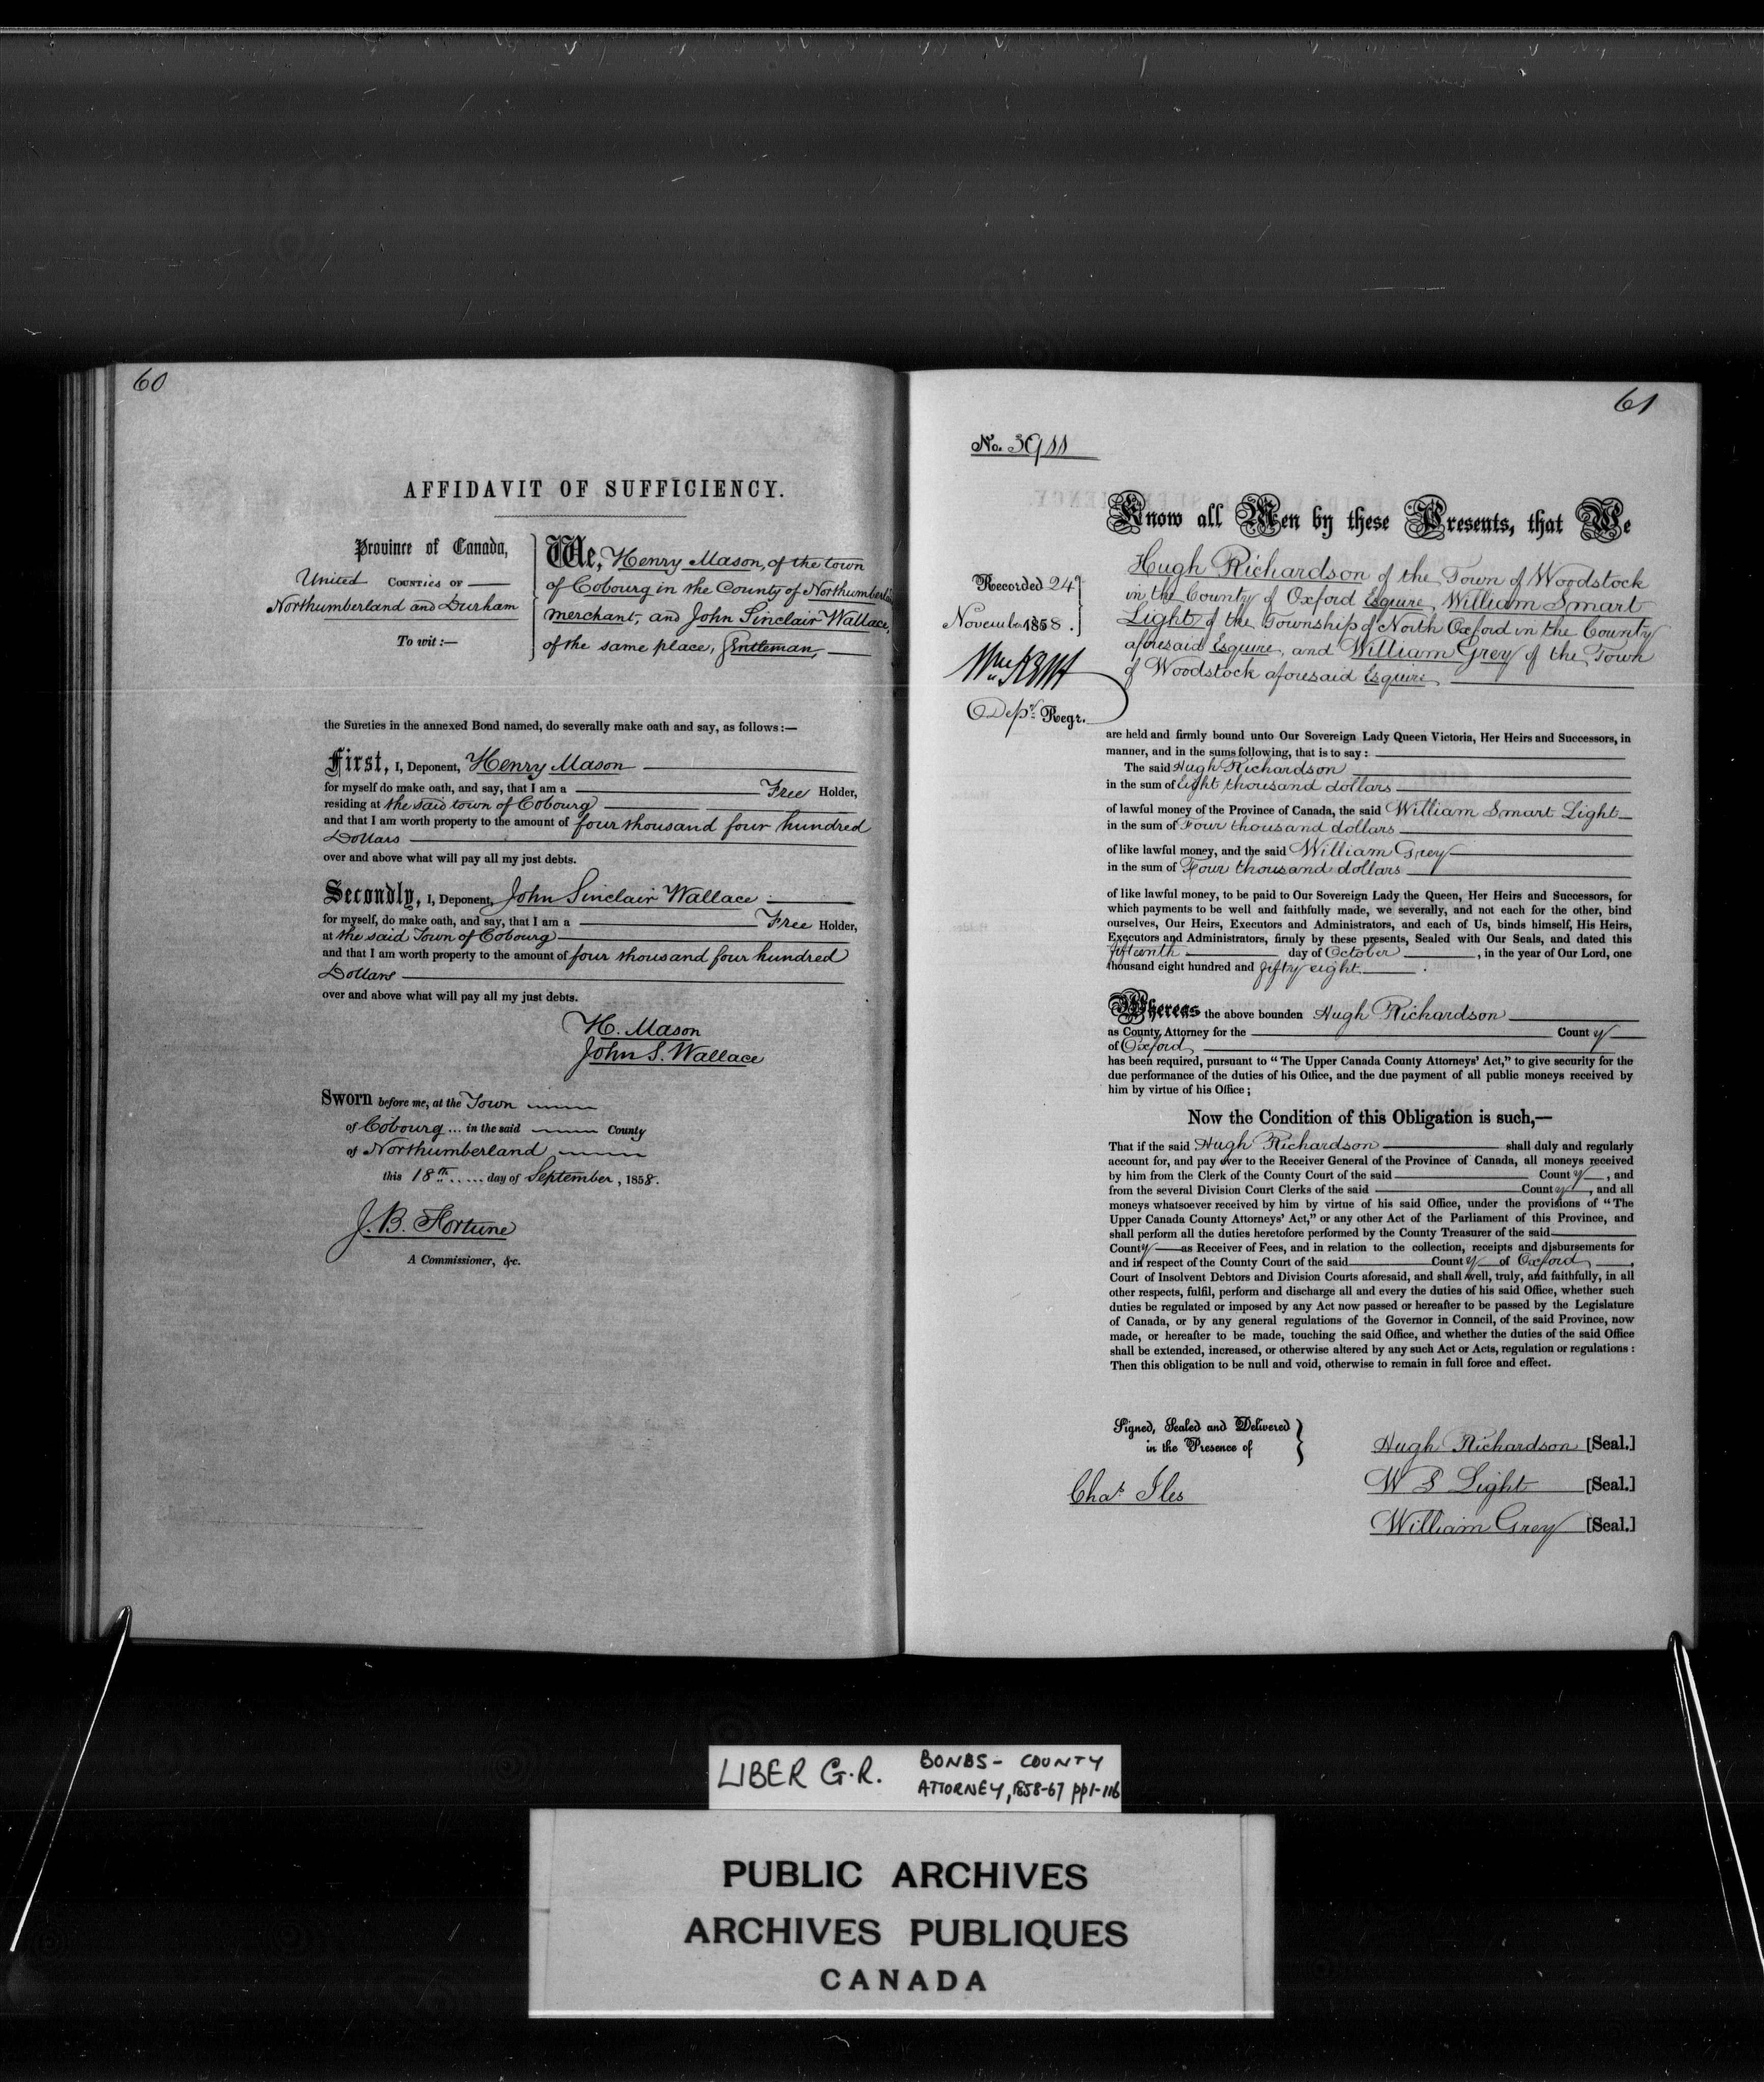 60
AFFIDAVIT OF SUFFICIENCY.
Province of Canada,
United COUNTies OF
Northumberland and Durham
To wit:—
We, Henry Mason, of the town
of Cobourg in the County of Northumberland
merchant, and John Sinclair Wallace,
of the same place, Gentleman,
the Sureties in the annexed Bond named, do severally make oath and say, as follows:—
First, I, Deponent, Henry Mason
for myself do make oath, and say, that I am a Free Holder,
residing at the said town of Cobourg
and that I am worth property to the amount of four thousand four hundred
Dollars
over and above what will pay all my just debts.
Secondly, I, Deponent, John Sinclair Wallace
for myself, do make oath, and say, that I am a Free Holder,
at the said Town of Cobourg
and that I am worth property to the amount of four thousand four hundred
Dollars
over and above what will pay all my just debts.
H. Mason
John S. Wallace
Sworn before me, at the Town
of Cobourg ... in the said County
of Northumberland
this 18th ..... day of September, 1858.
J. B. Fortune
A Commissioner, &c.
61
No. 3911
Recorded 24th
November 1858.
Depy Regr.
Know all Men by these Presents, that We
Hugh Richardson of the Town of Woodstock
in the County of Oxford Esquire, William Smart
Light of the Township of North Oxford in the County
aforesaid Esquire, and William Grey of the Town
of Woodstock aforesaid Esquire
are held and firmly bound unto Our Sovereign Lady Queen Victoria, Her Heirs and Successors, in
manner, and in the sums following, that is to say:
The said Hugh Richardson
in the sum of Eight thousand dollars
of lawful money of the Province of Canada, the said William Smart Light
in the sum of Four thousand dollars
of like lawful money, and the said William Grey
in the sum of Four thousand dollars
of like lawful money, to be paid to Our Sovereign Lady the Queen, Her Heirs and Successors, for
which payments to be well and faithfully made, we severally, and not each for the other, bind
ourselves, Our Heirs, Executors and Administrators, and each of Us, binds himself, His Heirs,
Executors and Administrators, firmly by these presents, Sealed with Our Seals, and dated this
fifteenth day of October, in the year of Our Lord, one
thousand eight hundred and fifty eight.
Whereas the above bounden Hugh Richardson
as County Attorney for the County
of Oxford
has been required, pursuant to "The Upper Canada County Attorneys' Act," to give security for the
due performance of the duties of his Office, and the due payment of all public moneys received by
him by virtue of his Office;
Now the Condition of this Obligation is such,—
That if the said Hugh Richardson shall duly and regularly
account for, and pay over to the Receiver General of the Province of Canada, all moneys received
by him from the Clerk of the County Court of the said County, and
from the several Division Court Clerks of the said County, and all
moneys whatsoever received by him by virtue of his said Office, under the provisions of "The
Upper Canada County Attorneys' Act," or any other Act of the Parliament of this Province, and
shall perform all the duties heretofore performed by the County Treasurer of the said
County as Receiver of Fees, and in relation to the collection, receipts and disbursements for
and in respect of the County Court of the said County of Oxford,
Court of Insolvent Debtors and Division Courts aforesaid, and shall well, truly, and faithfully, in all
other respects, fulfil, perform and discharge all and every the duties of his said Office, whether such
duties be regulated or imposed by any Act now passed or hereafter to be passed by the Legislature
of Canada, or by any general regulations of the Governor in Conncil, of the said Province, now
made, or hereafter to be made, touching the said Office, and whether the duties of the said Office
shall be extended, increased, or otherwise altered by any such Act or Acts, regulation or regulations:
Then this obligation to be null and void, otherwise to remain in full force and effect.
Signed, Sealed and Delivered
in the Presence of
Chas Iles
Hugh Richardson [Seal.]
W S Light [Seal.]
William Grey [Seal.]
LIBER G.R. BONDS - COUNTY
ATTORNEY, 1858-67 pp1-116
PUBLIC ARCHIVES
ARCHIVES PUBLIQUES
CANADA